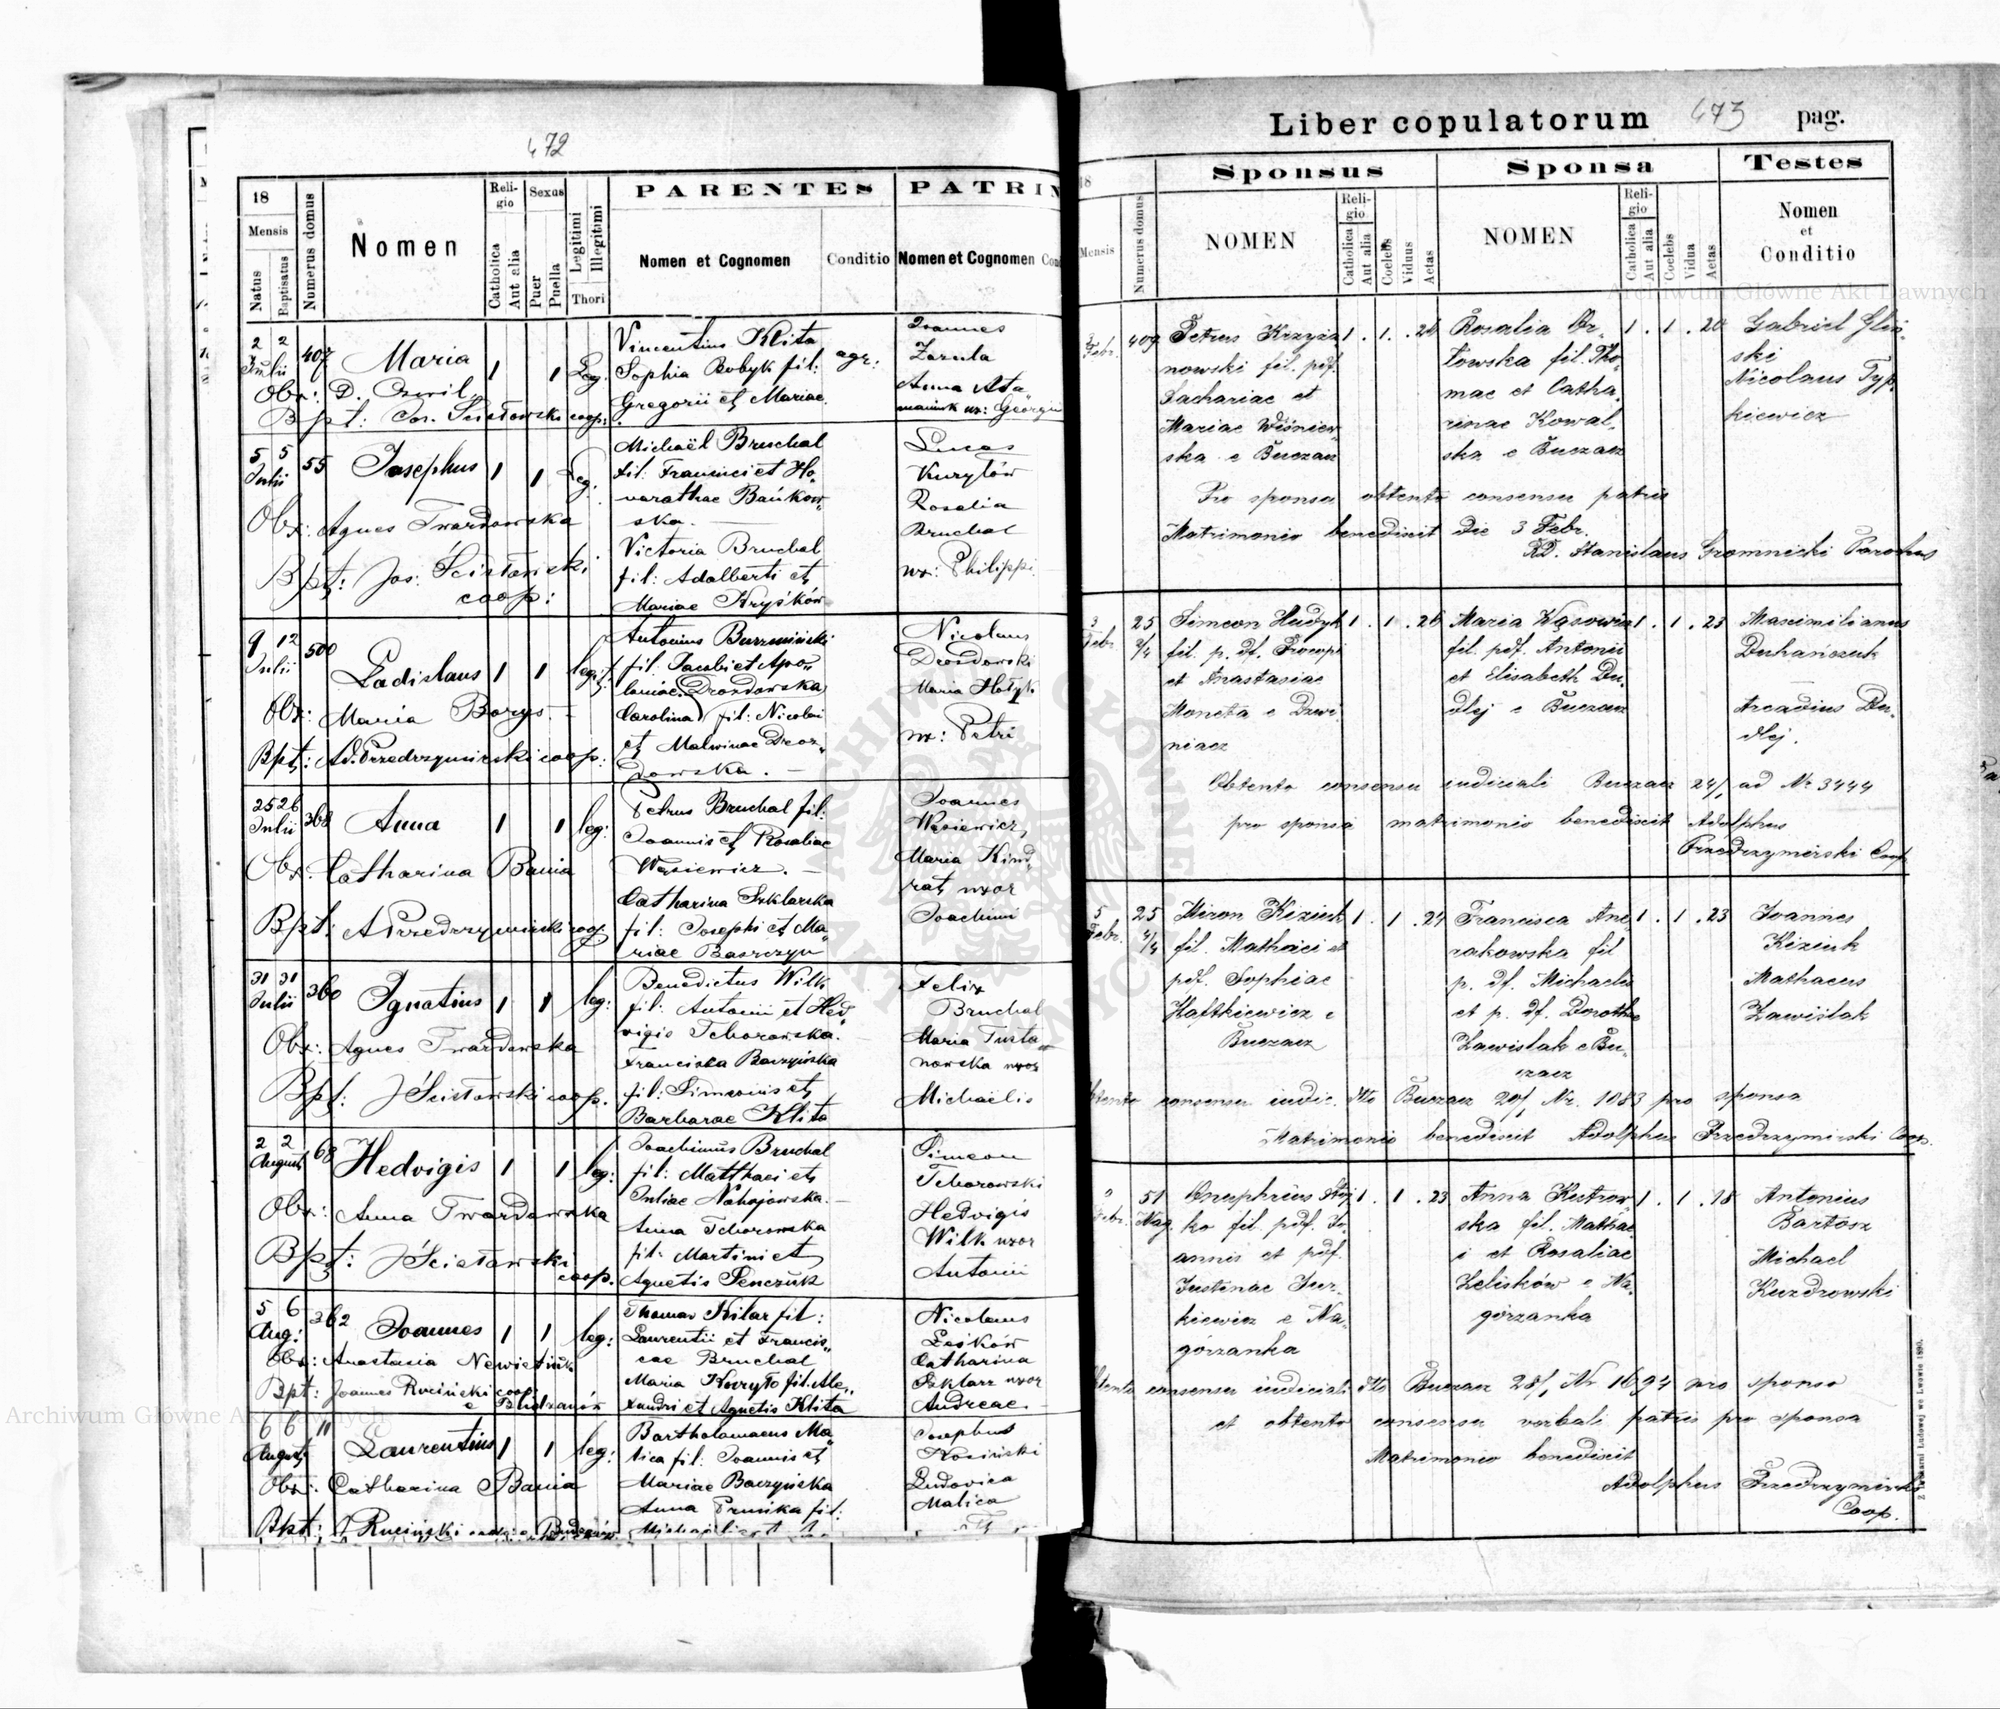 472
18
Mensis
Natus
Baptisatus
Numerus domus
Nomen
Religio
Catholica
Aut alia
Sexus
Puer
Puella
Legitimi
Illegitimi
Thori
PARENTES
Nomen et Cognomen
Conditio
PATRIN
Nomen et Cognomen
2 2
Julii
407
Maria
1 1 Leg.
Obx: D.
Bpt: Jos. Ścisłowski coop:
Vincentius Klita
Sophia Bobyk fil:
Gregorii et Mariae
agr:
Joannes
Zarula
Anna
ux: Georgii
5 5
Julii
55
Josephus
1 1 Leg.
Obx: Agnes Twardowska
Bpt: Jos: Ścisłowski
coop:
Michaël Bruchal
fil: Francisci et Ho
norathae Bańkow
ska.
Victoria Bruchal
fil: Adalberti et
Mariae Kryśków
Lucas
Kuryłów
Rosalia
Bruchal
ux: Philippi
9 12
Julii
500
Ladislaus
1 1 legit.
Obx: Maria Borys.
Bpt: Ad. Przedrzymirski coop.
Antonius Burzmiński
fil: Jacobi et Apo
loniae Drozdowska
Carolina fil: Nicolai
et Malwinae Droz
dowska.
Nicolaus
Drozdowski
Maria Hołyk
ux: Petri
25 26
Julii
368
Anna
1 1 leg:
Obx: Catharina Bania
Bpt: A Przedrzymirski coop
Petrus Bruchal fil:
Joannis et Rosaliae
Wąsiewicz.
Catharina Szklarska
fil: Josephi et Ma
riae Baszczyn
Joannes
Wąsiewicz
Maria Kind
rat uxor
Joachimi
31 31
Julii
360
Ignatius
1 1 leg:
Obx: Agnes Twardowska
Bpt: J Ścisłowski coop.
Benedictus Wilk
fil: Antonii et Hed
vigis Tchorowska.
Franciska Baczyńska
fil: Simeonis et
Barbarae Klita
Felix
Bruchal
Maria Tusta
nowska uxor
Michaëlis
2 2
August
68
Hedvigis
1 1 leg:
Obx: Anna Twardowska
Bpt: J Ścisłowski
coop.
Joachimus Bruchal
fil: Matthaei et
Juliae Nahajowska.
Anna Tchorowska
fil: Martini et
Agnetis Senczuk
Simeon
Tchorowski
Hedvigis
Wilk uxor
Antonii
5 6
Aug:
362
Joannes
1 1 leg:
Obx: Anastasia
Bpt: Joannes Ruciński coop:
Thomas Kilar fil:
Laurentii et Francis
cae Bruchal
Maria Koryto fil. Ale
xandri et Agnetis Klita
Nicolaus
Leśków
Catharina
Szklarz uxor
Andreae
6 6
August
11
Laurentius
1 1 leg:
Obx: Catharina Bania
Bpt: J. Ruciński
Bartholomaeus Ma
lica fil: Joannis et
Mariae Baczyńska
Anna Pruńka fil:
Josephus
Kosiński
Ludovica
Malica
Liber copulatorum 473 pag.
18
Mensis
Numerus domus
Sponsus
NOMEN
Religio
Catholica
Aut alia
Coelebs
Viduus
Aetas
Sponsa
NOMEN
Religio
Catholica
Aut alia
Coelebs
Vidua
Aetas
Testes
Nomen
et
Conditio
Febr. 409
Petrus Krzyża
nowski fil. pdf.
Zachariae et
Mariae Wiśniew
ska e Buczacz
1 . 1 . 24
Rosalia Or
łowska fil. Tho
mae et Catha
rinae Kowal
ska e Buczacz
1 . 1 . 20
Gabriel Gliń
ski
Nicolaus Typ
kiewicz
Pro sponsa obtento consensu patris
Matrimonio benedixit die 3 Febr.
RD. Stanislaus Gromnicki Parochus
3
Febr.
25
Simeon Hudyk
fil. p. df. Procopi
et Anastasiae
Moneta e Dzwi
niacz
1 . 1 . 26
Maria Wąsowicz
fil. pdf. Antonii
et Elisabeth Du
dlej e Buczacz
1 . 1 . 23
Maximilianus
Duhańczuk
Arcadius Du
dlej.
Obtento consensu iudiciali Buczacz 24/1 ad Nr 3444
pro sponsa matrimonio benedixit Adolphus
Przedrzymirski Coop.
5
Febr.
25
4/4
Miron Kiziuk
fil. Mathaei et
pdf. Sophiae
Haftkiewicz e
Buczacz
1 . 1 . 24
Francisca Ane
rakowska fil
p. df. Michaelis
et p. df. Dorothe
Zawiślak e Bu
czacz
1 . 1 . 23
Joannes
Kiziuk
Mathaeus
Zawiślak
consensu iudic. dto Buczacz 20/1 Nr. 1083 pro sponsa
Matrimonio benedixit Adolphus Przedrzymirski Coop.
Febr.
51
Nag
Onuphrius
ko fil. pdf. Jo
annis et pdf.
Justinae Jur
kiewicz e Na
górzanka
1 . 1 . 23
Anna Kutrow
ska fil. Mathae
i et Rosaliae
Zelisków e Na
górzanka
1 . 1 . 18
Antonius
Bartosz
Michael
Kuzdrowski
consensu iudiciali dto Buczacz 28/1 Nr 1694 pro sponso
et obtento consensu verbali patris pro sponsa
Matrimonio benedixit
Adolphus Przedrzymirski
Coop.
Z Drukarni Ludowej we Lwowie 1890.
Archiwum Główne Akt Dawnych
Archiwum Główne Akt Dawnych
ARCHIWUM GŁÓWNE AKT DAWNYCH